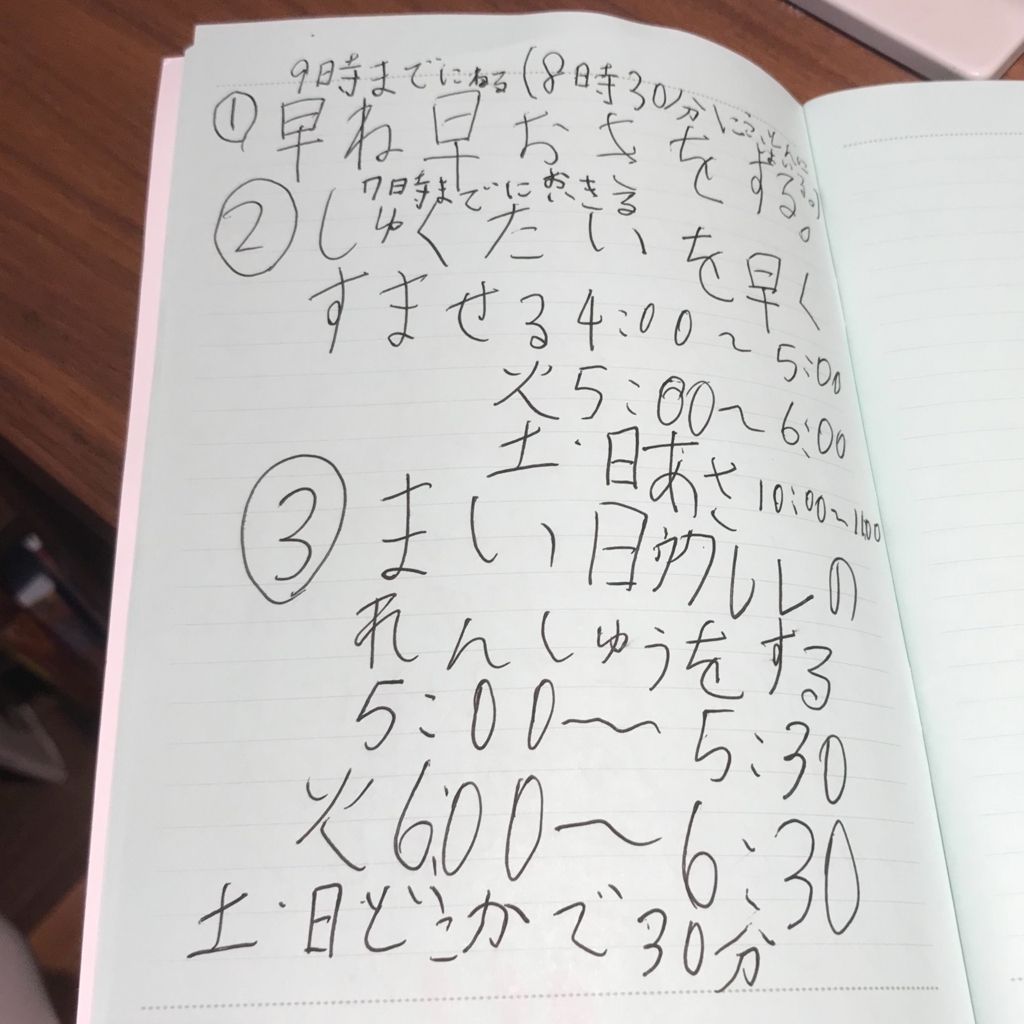 9日寺までにねる(8時30分にふとんに
はいる。)
①早ね早おきをする。
7時までにおきる
②しゅくだいを早く
すませる4:00〜5:00
火5:00〜6:00
土・日あさ10:00〜11:00
③まい日
れんしゅうをする
5:00〜5:30
火6:00〜6:30
土・日どこかで30分